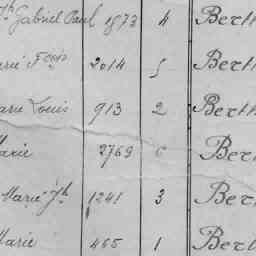 Jh Gabriel Paul 1873 4 Berth
arie Fçois 2014 5 Berth
arie Louis 913 2 Berth
arie 2769 6 Berth
Marie Jh 1241 3 Berth
Marie 465 1 Berth